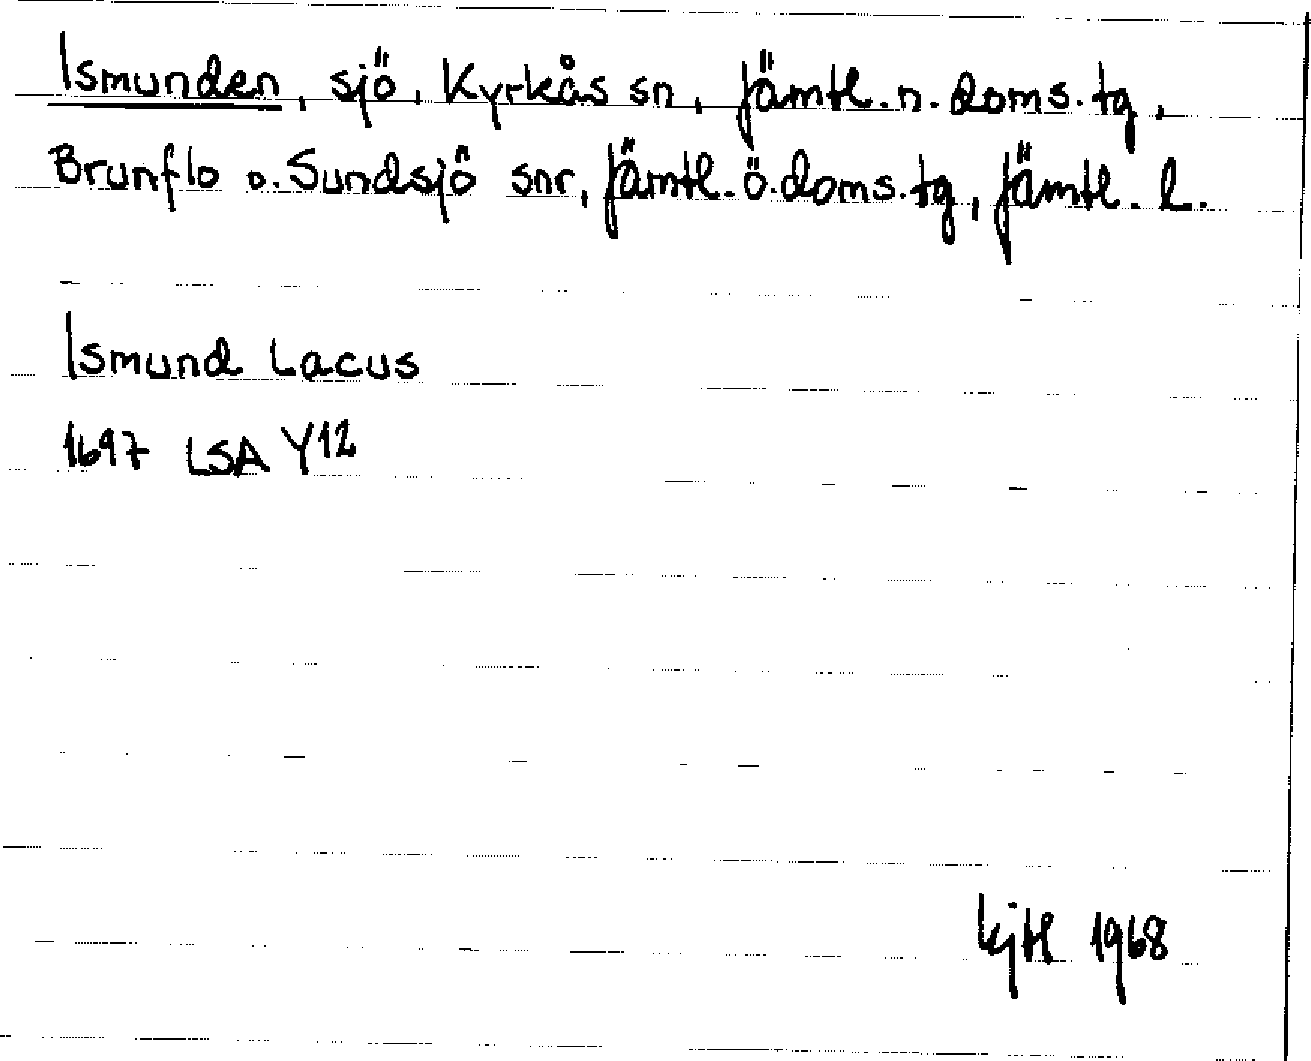 Ismunden, sjö, Kyrkås sn, Jämtl. n. doms. tg,
Brunflo o. Sundsjö snr, Jämtl. ö. doms. tg, Jämtl. l.
Ismund Lacus
1697 LSA Y12
1968